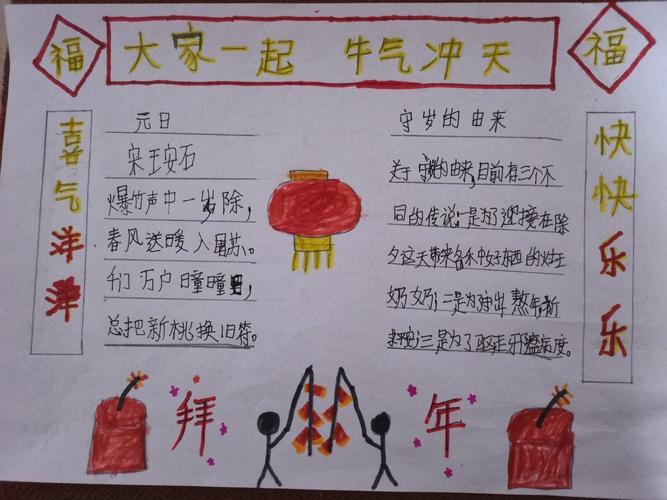 福
大家一起 牛气冲天
福
喜气洋洋
元日
宋王安石
爆竹声中一岁除,
春风送暖入屠苏。
千门万户曈曈日,
总把新桃换旧符。
守岁的由来
关于守岁的由来,目前有三个不
同的传说:一是为了迎接在除
夕这天带来各种好东西的灶王
奶奶;二是为 熬年祈
平安;三是为了驱走邪瘟病疫。
快快乐乐
拜年